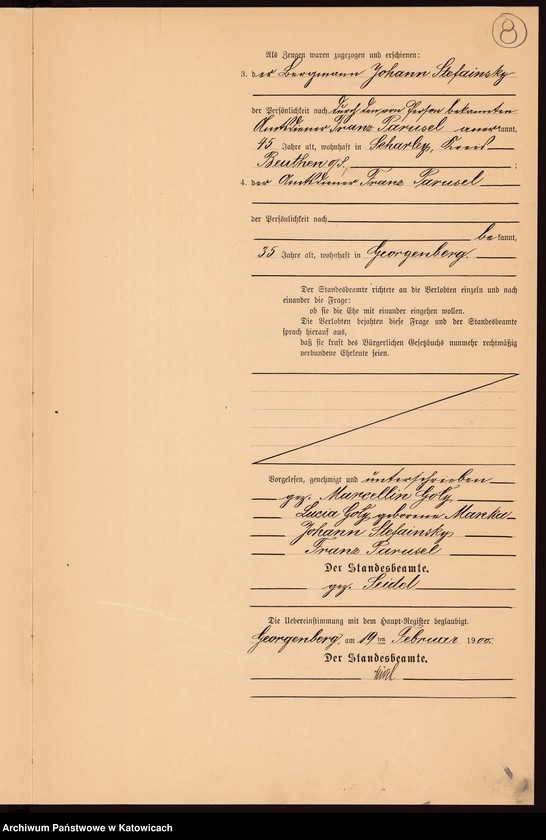 8
Als Zeugen waren zugezogen und erschienen:
3. der Bergmann Johann Stefainsky
der Persönlichkeit nach durch den von Person bekannten
Amtsdiener Franz Parusel anerkannt,
45 Jahre alt, wohnhaft in Scharley, Kreis
Beuthen O/S, ;
4. der Amtsdiener Franz Parusel
der Persönlichkeit nach
be kannt,
35 Jahre alt, wohnhaft in Georgenberg.
Der Standesbeamte richtete an die Verlobten einzeln und nach
einander die Frage:
ob sie die Ehe mit einander eingehen wollen.
Die Verlobten bejahten diese Frage und der Standesbeamte
sprach hierauf aus,
daß sie kraft des Bürgerlichen Gesetzbuchs nunmehr rechtmäßig
verbundene Eheleute seien.
Vorgelesen, genehmigt und unterschrieben
gez. Marcellin Goly
Lucia Goly geborene Manka
Johann Stefainsky
Franz Parusel
Der Standesbeamte.
gez. Seidel
Die Uebereinstimmung mit dem Haupt-Register beglaubigt.
Georgenberg, am 19ten Februar 1900.
Der Standesbeamte.
Seidel
Archiwum Państwowe w Katowicach